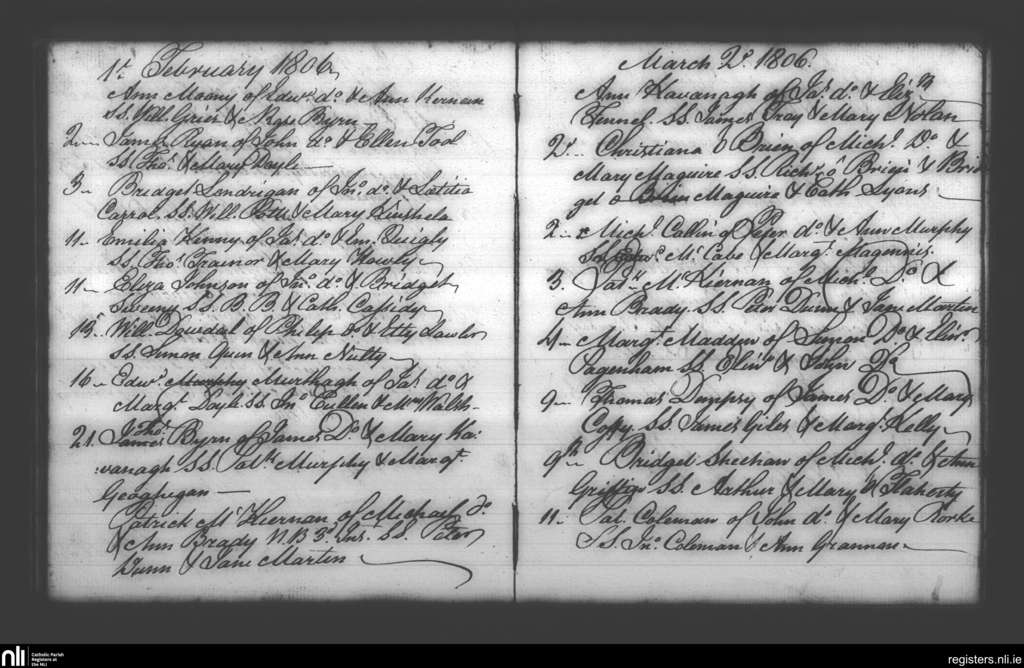 1st February 1806
Ann Moony of Edwd. do. & Ann Kernan
SS. Will. Grier & Rose Byrn
2 James Ryan of John do. & Ellen Tool
SS. Thos. & Mary Doyle
3 Bridget Londrigan of Jno. do. & Latitia
Carrol. SS. Will. & Mary Kinshela
11 Emilia Kinny of Jas. do. & Em. Quigly
SS. Thos. Trainor & Mary
11 Eliza Johnson of Jno. do. & Bridget
Sweeny SS. B. B. & Cath. Cassidy
15 Will. Dowdal of Philip do & Lawlor
SS. Simon Quin & Ann Nulty
16 Edwd. Murphy Murthagh of Jas. do. &
Margt. Doyle SS. Jno. Cullen & Walsh
21. James Thos. Byrn of James Do. & Mary Ka
vanagh SS. Patk. Murphy & Margt.
Geoghegan
Patrick Mc. Kiernan of Michael do
& Ann Brady N.B. 3d. Inst. SS. Peter
Dunn & Jane Martin
March 2d. 1806.
Ann Kavanagh of Jas. do. &
SS. James & Mary Nolan
2d. Christiana O Brien of Michl. Do. &
Mary Maguire SS. Richd. O Brien & Brid
get Maguire & Cath Lyons
2 Michl. Callin of Peter do. & Ann Murphy
SS. Edwd. Mc. Cabe & Margt. Magennis
3. Patk. Mc. Kiernan of Michl. Do. &
Ann Brady SS. Peter Dunn & Jane Martin
4 Margt. Madden of Simon Do. &
Pagenham SS. & John Do
9 Thomas Dempsy of James Do. & Marg
SS. James Giles & Margt. Kelly
9th Bridget Sheehan of Michl. do. & Ann
Griffin SS. Arthur & Mary O Flaherty
11 Pat. Coleman of John do. & Mary Rorke
SS. Jno. Coleman & Ann Grannan
nli Catholic Parish
Registers at
the NLI
registers.nli.ie